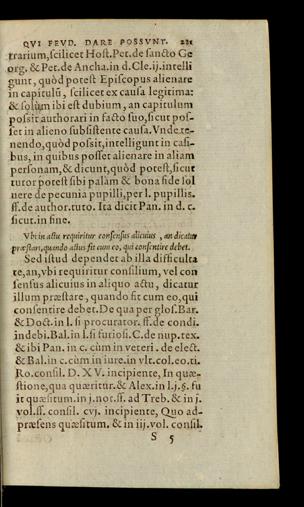 QVI FEVD. DARE POSSVNT. 221
trarium, scilicet Host. Pet. de sancto Ge
org. & Pet. de Ancha. in d. Cle. ij. intelli
gunt, quòd potest Episcopus alienare
in capitulū, scilicet ex causa legitima:
& solùm ibi est dubium, an capitulum
possit authorari in facto suo, sicut pos-
set in alieno subsistente causa. Vnde te-
nendo, quòd possit, intelligunt in casi-
bus, in quibus posset alienare in aliam
personam, & dicunt, quòd potest, sicut
tutor potest sibi palàm & bona fide sol
uere de pecunia pupilli, per l. pupillis.
ff. de author. tuto. Ita dicit Pan. in d. c.
sicut. in fine.
Vbi in actu requiritur consensus alicuius, an dicatur
præstari, quando actus fit cum eo, qui consentire debet.
Sed istud dependet ab illa difficulta
te, an, vbi requiritur consilium, vel con
sensus alicuius in aliquo actu, dicatur
illum præstare, quando fit cum eo, qui
consentire debet. De qua per glos. Bar.
& Doct. in l. si procurator. ff. de condi.
indebi. Bal. in l. si furiosi. C. de nup. tex.
& ibi Pan. in c. cùm in veteri. de elect.
& Bal. in c. cùm in iure. in vlt. col. eo. ti.
Ro. consil. D. XV. incipiente, In quæ-
stione, qua quæritur. & Alex. in l. j. §. fu
it quæsitum. in j. not. ff. ad Treb. & in j.
vol. ff. consil. cvj. incipiente, Quo ad-
præsens quæsitum. & in iij. vol. consil.
S 5